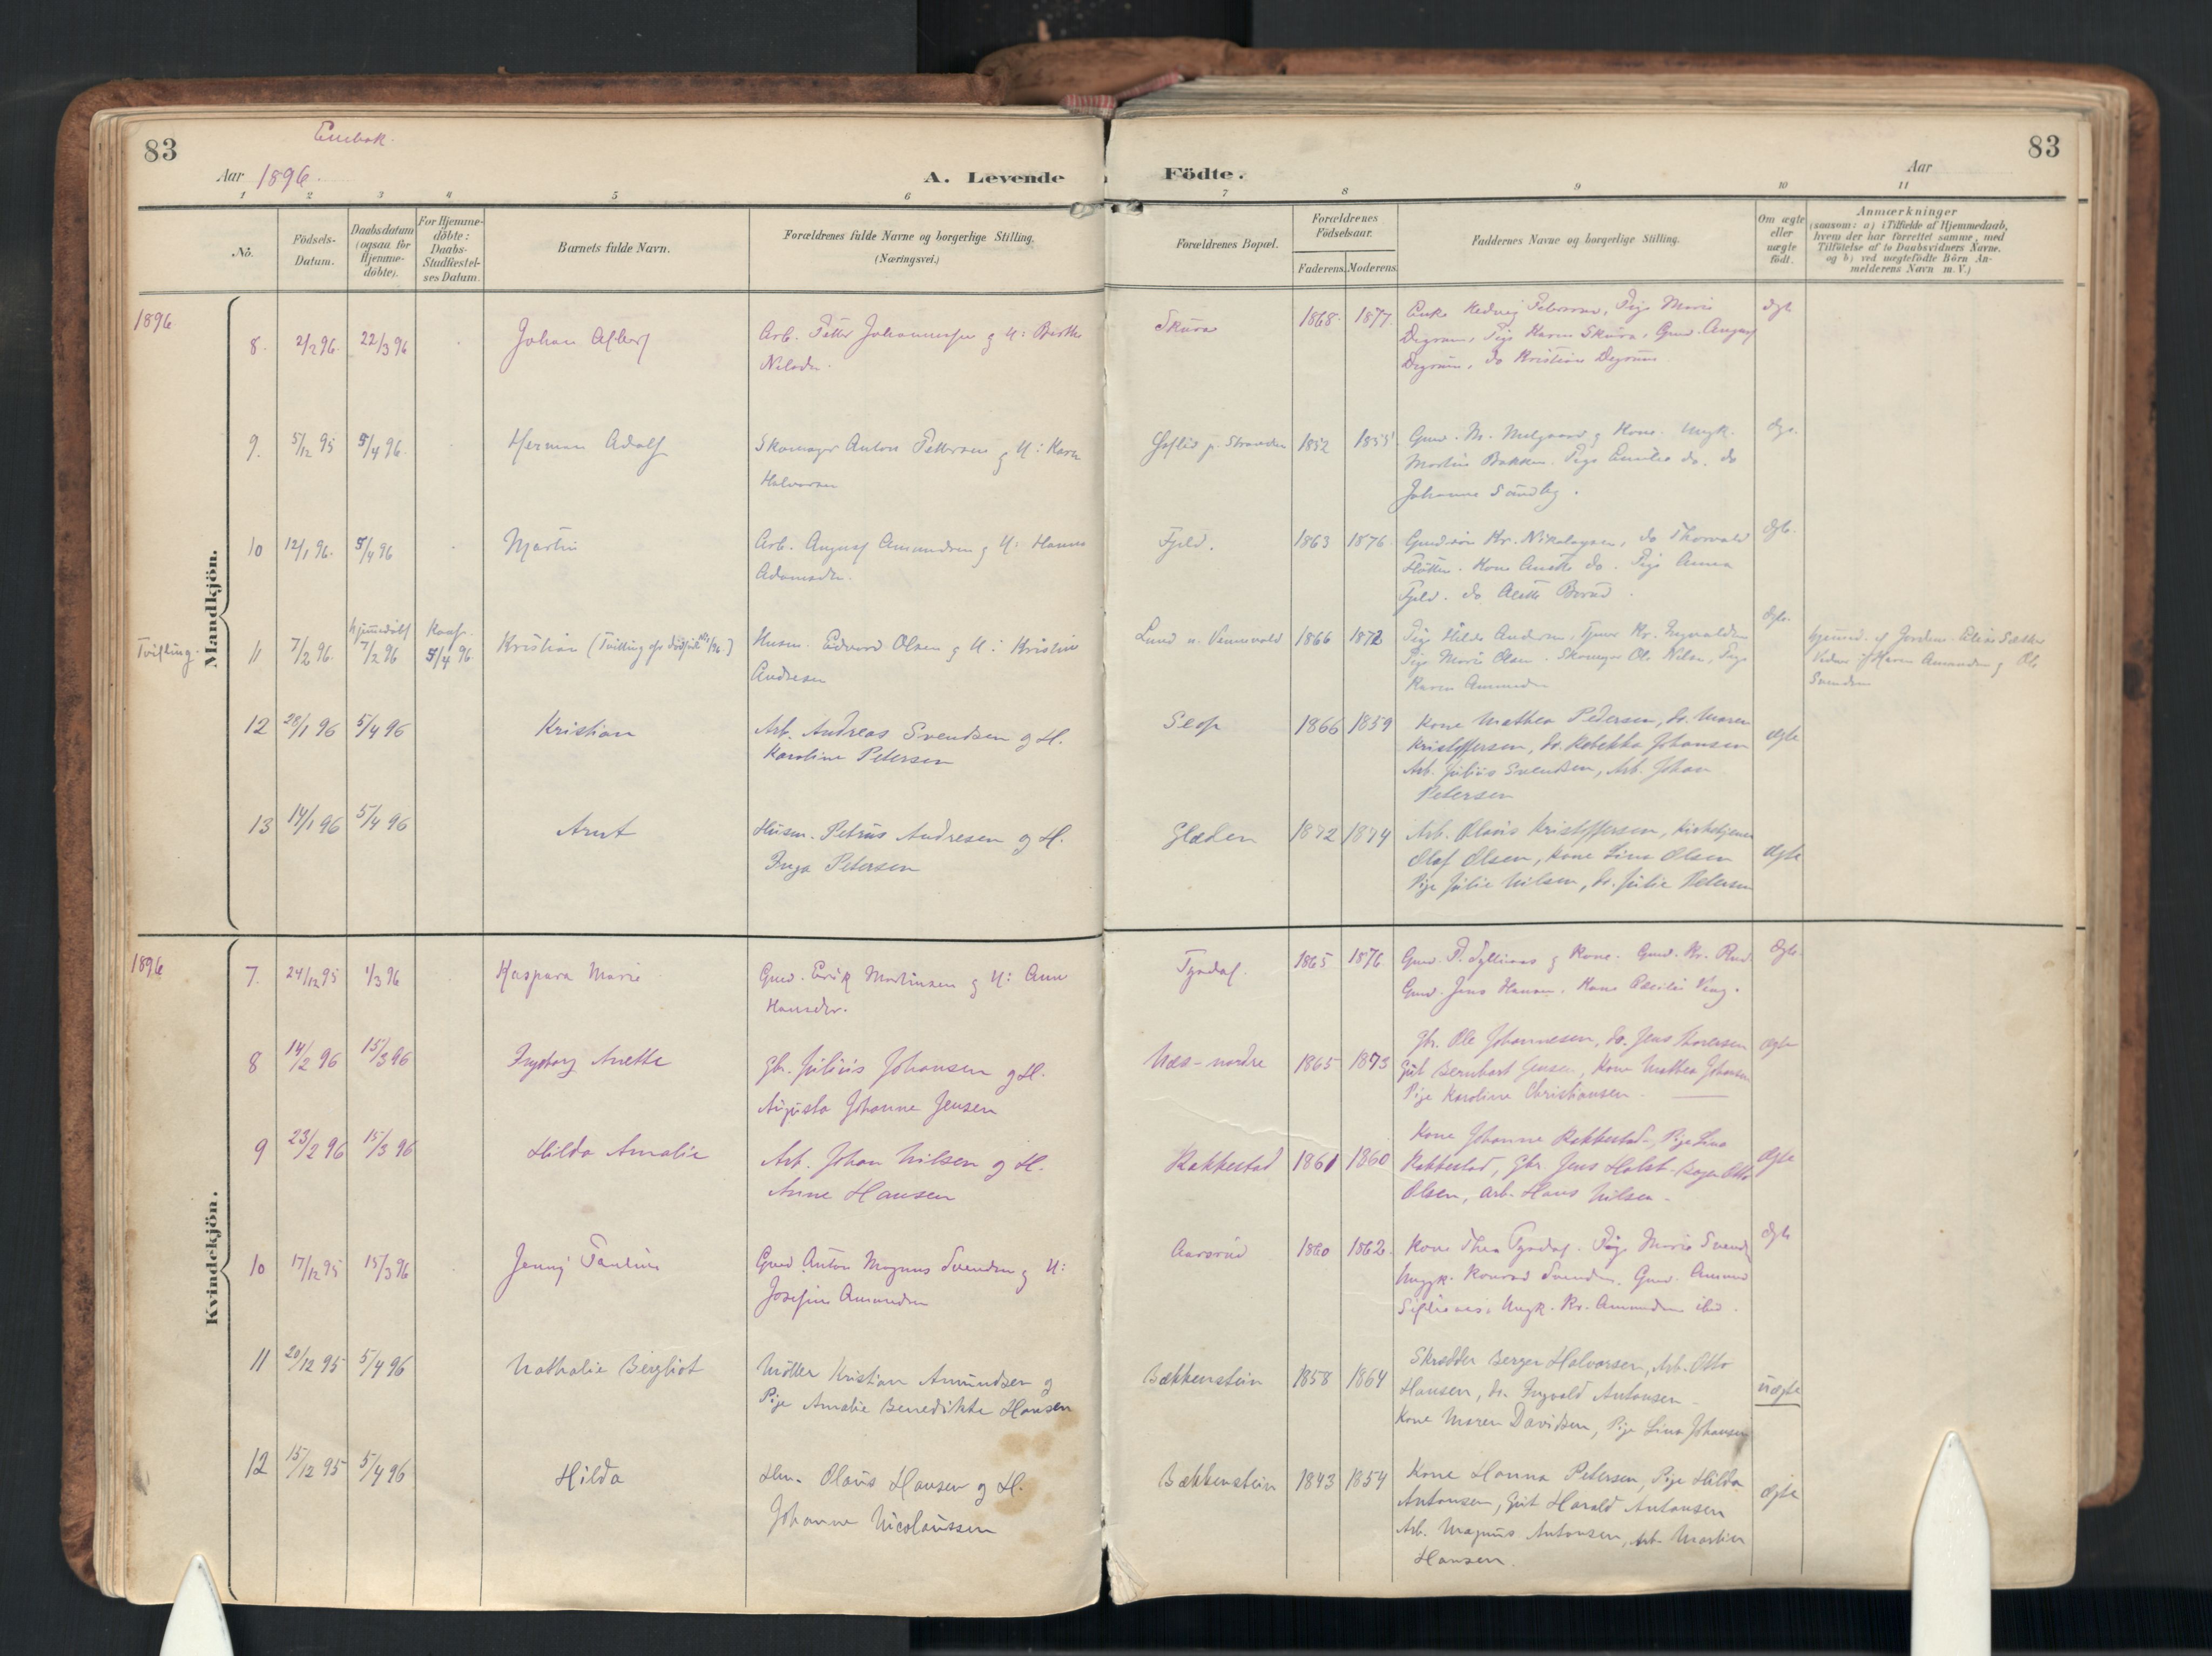 83
Enebak.
Aar 1896.
A. Levende
1 2 3 4 5 6
No.
Födsels-
Datum.
Daabsdatum
(ogsaa for
Hjemme-
döbte).
For Hjemme-
döbte:
Daabs-
Stadfæstel-
ses Datum.
Barnets fulde Navn.
Forældrenes fulde Navne og borgerlige Stilling.
(Næringsvei.)
Födte.
83
Aar
7 8 9 10 11
Forældrenes Bopæl.
Forældrenes
Födselsaar.
Faderens. Moderens.
Faddernes Navne og borgerlige Stilling.
Om ægte
eller
uægte
födt.
Anmærkninger
(saasom: a) i Tilfælde af Hjemmedaab,
hvem der har forrettet samme, med
Tilföielse af to Daabsvidners Navne,
og b) ved uægtefödte Börn An-
melderens Navn m. V.)
Mandkjön.
1896
8. 2/2 96. 22/3 96 Johan Albert Arb. Petter Johannessen g H: Berthe
Nilsdr.
Skura 1868. 1877. Enke Hedvig Petersen, Pige Marie
Degrum, Pige Karen Skura, Gmd. August
Degrum, do Kristian Degrum
ægt
9. 5/12 95 5/4 96. Herman Adolf Skomager Anton Pettersen g H: Karen
Halvorsen
1852 1855 Gmd. M. Melgaard g Kone. Ungk.
Martin Bakken. Pige Emilie do. do
Johanne Sundby.
ægt.
10 12/1 96. 5/4 96 Martin Arb. August Amundsen g H: Hanna
Adamsdr.
Fjeld. 1863 1876. Gmdsön Kr. Nikolaysen, do Thorvald
Kone Anette do. Pige Anna
Fjeld. do Alette Borud.
ægt.
Tvilling. 11 7/2 96. hjemmedöbt
7/2 96 Konf.
5/4 96. Kristian (Tvilling
Husm. Edvard Olsen g H: Kristine
Andresen
Lund u. Vennevold 1866 1872 Pige Hilda Andersen, Tjener Kr. Ingvaldsen
Pige Marie Olsen. Skomager Ole Nilsen, Pige
Karen Amundsen
ægte.
hjemmed. af Jordem. Elise Sæther
Vidner: Karen Amundsen g Ole
Svendsen
12 28/1 96 5/4 96 Kristian Arb. Andreas Svendsen og H.
Karoline Petersen
1866 1859 Kone Mathea Pedersen, do. Maren
Kristoffersen, do. Rebekka Johansen
Arb. Julius Svendsen, Arb. Johan
Petersen
ægte
13 14/1 96 5/4 96 Arnt Husm. Petrus Andresen og H.
Inga Petersen
Glæden 1872 1874 Arb. Olavis Kristoffersen, Kirketjener
Olaf Olsen, Kone Lina Olsen
Pige Julie Nilsen, do. Julie Petersen
ægte
Kvindekjön.
1896
7. 24/12 95 1/3 96 Kaspara Marie Gmd. Erik Martinsen g H: Anna
Hansdr.
1865 1876 Gmd. P. g Kone. Gmd. Kr. Rud.
Gmd. Jens Hansen. Kone
ægte
8 14/2 96 15/3 96 Ingeborg Anette Gbr. Julius Johansen og H.
Augusta Johanne Jensen
Næs-nordre 1865 1873 Gbr. Ole Johannesen, do. Jens Thoresen
Gut Bernhart Jensen, Kone Mathea Johansen
Pige Karoline Christiansen.
ægte
9 23/2 96 15/3 96 Hilda Amalie Arb. Johan Nilsen og H.
Anne Hansen
Rakkestad 1861 1860 Kone Johanne Rakkestad, Pige Lina
Rakkestad, Gbr. Jens Holst. Otto
Olsen, Arb. Hans Nilsen.
ægte
10 17/12 95 15/3 96 Jenny Pauline Gmd Anton Magnus Svendsen g H:
Josefine Amundsen
Aarsrud 1860 1862. Kone Thea Pige Marie Svends
Ungk. Konrad Svendsen. Gmd. Amund
Ungk. Kr. Amundsen ibid.
ægte
11 20/12 95 5/4 96 Nathalie Bergliot Möller Kristian Amundsen og
Pige Amalie Benedikte Hansen
Bækkenstein 1858 1864 Skrædder Berger Halvorsen, Arb. Otto
Hansen, do. Ingvald Antonsen
Kone Maren Davidsen, Pige Lina Johansen
uægte
12 15/12 95 5/4 96 Hilda Hm. Olaus Hansen og H.
Johanne Nicolaussen
Bækkenstein 1843 1854 Kone Hanna Petersen, Pige Hilda
Antonsen, Gut Harald Antonsen
Arb. Magnus Antonsen, Arb. Martin
Hansen.
ægte